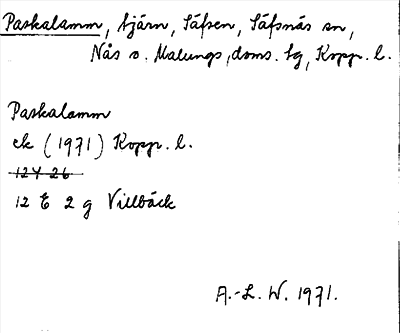 Paskalamm, tjärn, Säfsen, Säfsnäs sn,
Nås o. Malungs doms. tg, Kopp. l.
Paskalamm
ek (1971) Kopp. l.
12 Y 26
12 E 2 g Villbäck
A.-L. W. 1971.